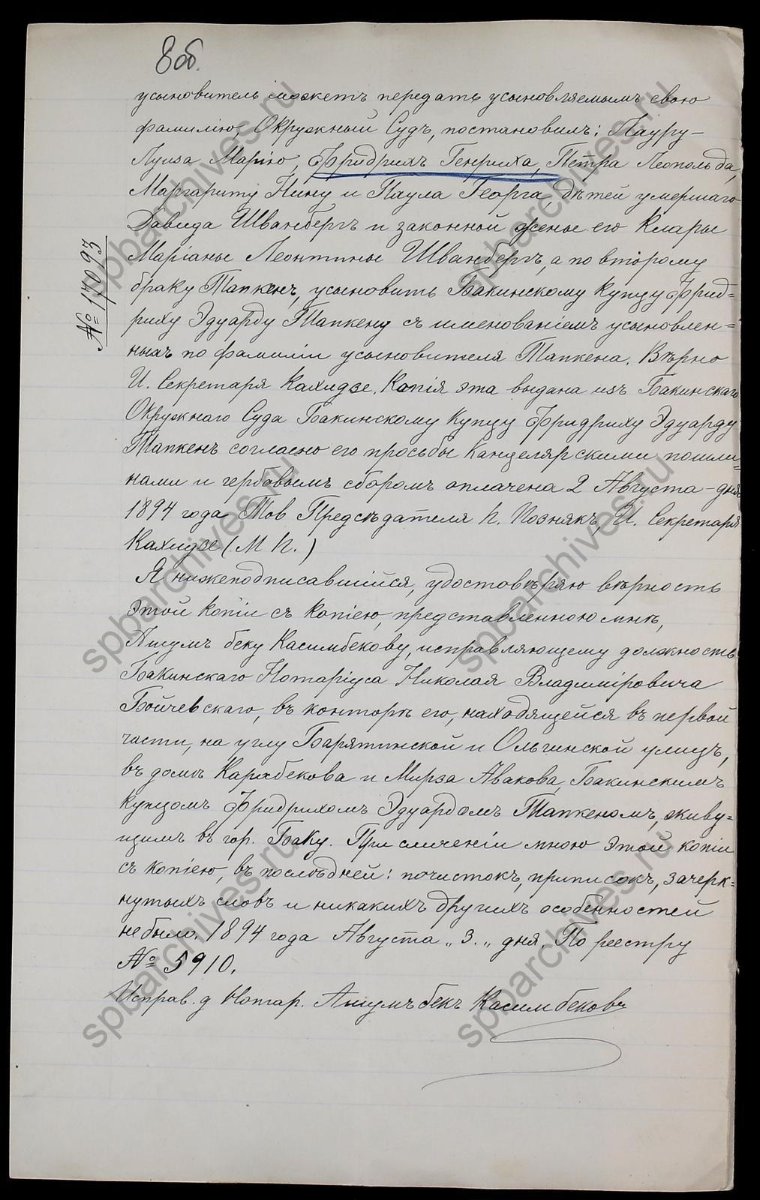 8об.
усыновитель можетъ передать усыновляемымъ свою
фамилію, Окружный Судъ, постановилъ: Лауру-
Луиза Марію, Фридриха Генриха, Петра Леопольда,
Маргариту Нину и Паула Георга дѣтей умершаго
Давида Шванбергъ и законной жены его Клары
Маріаны Леонтины Шванбергъ, а по второму
браку Тапкенъ, усыновить Бакинскому Купцу Фрид-
риху Эдуарду Тапкену съ именованіемъ усыновлен-
ныхъ по фамиліи усыновителя Тапкена. Вѣрно
И. Секретаря Кахидзе. Копія эта выдана изъ Бакинскаго
Окружнаго Суда Бакинскому купцу Фридриху Эдуарду
Тапкенъ согласно его просьбы Канцелярскими пошли-
нами и гербовымъ сборомъ оплачена 2 Августа дня
1894 года. Тов Предсѣдателя П. Познякъ, И. Секретаря
Кахидзе (М П.)
Я нижеподписавшійся, удостовѣряю вѣрность
этой копіи съ копіею, представленною мнѣ,
беку Касимбекову, исправляющему должность
Бакинскаго Нотаріуса Николая Владиміровича
Бойчевскаго, въ конторѣ его, находящейся въ первой
части, на углу Барятинской и Ольгинской улицъ,
въ домѣ Карабекова и Мирза Авакова, Бакинскимъ
купцомъ Фридрихомъ Эдуардомъ Тапкеномъ, живу-
щимъ въ гор. Баку. При сличеніи мною этой копіи
съ копіею, въ послѣдней: почистокъ, приписокъ, зачерк-
нутыхъ словъ и никакихъ другихъ особенностей
не было. 1894 года Августа „3„ дня. По реестру
№ 5910.
Исправ. д Нотар. бекъ Касимбековъ
№ 17093
spbarchives.ru
spbarchives.ru
spbarchives.ru
spbarchives.ru
spbarchives.ru
spbarchives.ru